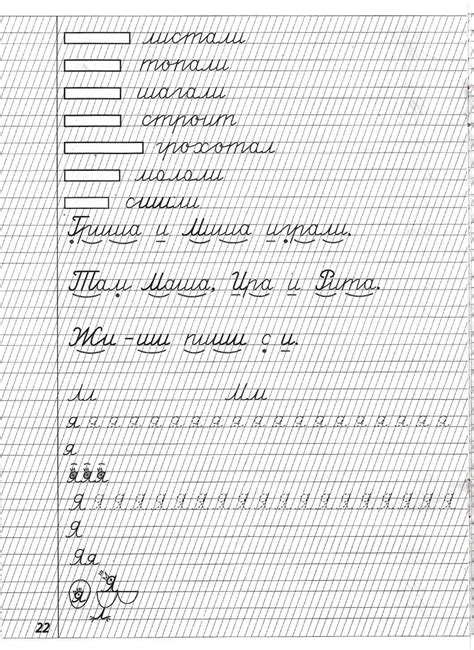 листали
топали
шагали
строит
грохотал
мололи
сшили
Гриша и Миша играли.
Там Маша, Ира и Рита.
Жи -ши пиши с и.
Мм
я я я я я я я я я я я я я я я я я я я
я
я я я
Я Я Я Я Я Я Я Я Я Я Я Я Я Я Я Я Я Я Я
Я
Яя
22